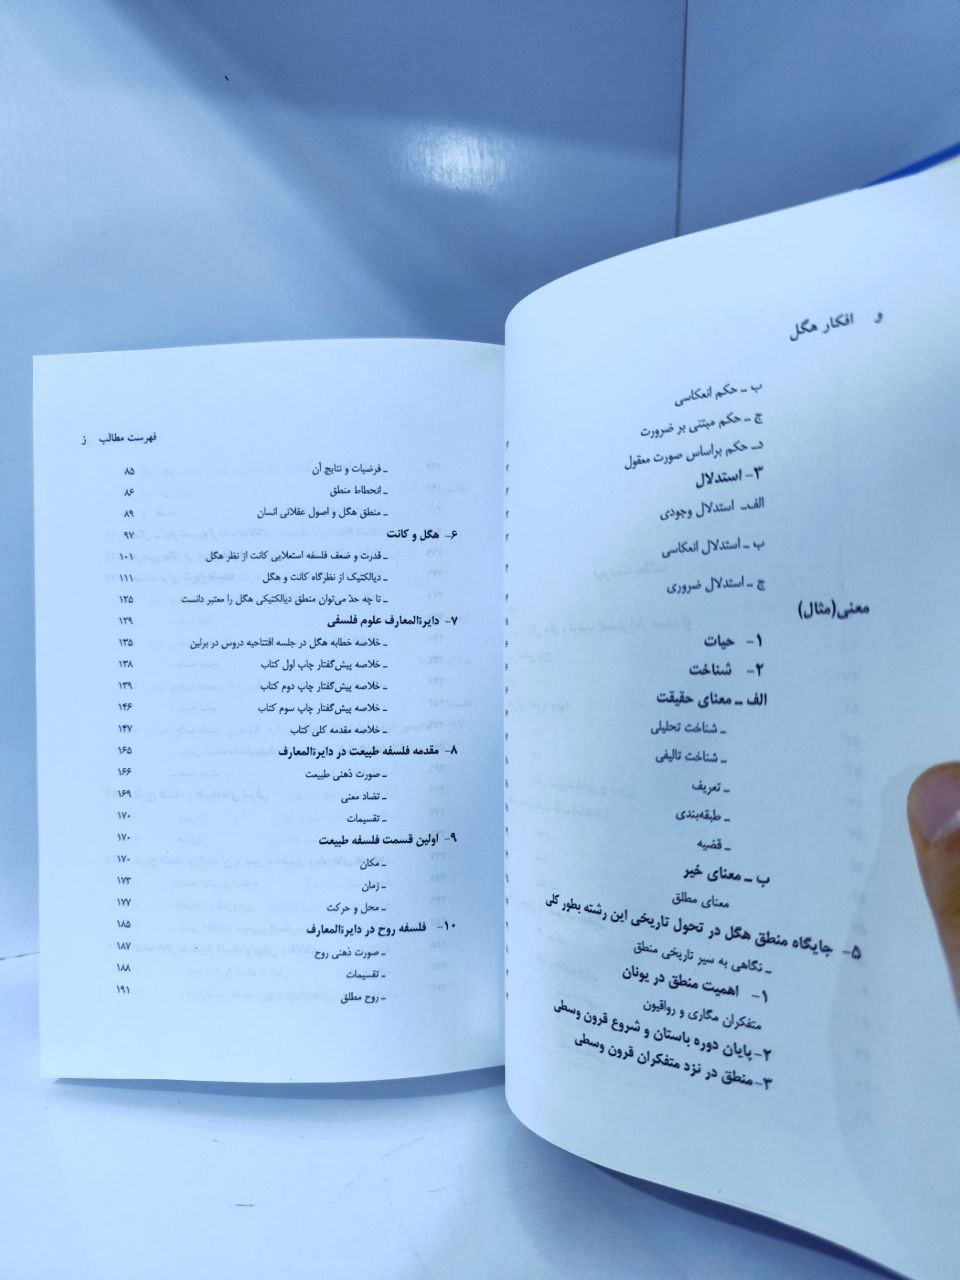 و افکار هگل
ب ـ حکم انعکاسی
ج ـ حکم مبتنی بر ضرورت
د ـ حکم براساس صورت معقول
۳- استدلال
الف ـ استدلال وجودی
ب ـ استدلال انعکاسی
ج ـ استدلال ضروری
معنی(مثال)
۱- حیات
۲- شناخت
الف ـ معنای حقیقت
ـ شناخت تحلیلی
ـ شناخت تالیفی
ـ تعریف
ـ طبقه‌بندی
ـ قضیه
ب ـ معنای خیر
معنای مطلق
۵- جایگاه منطق هگل در تحول تاریخی این رشته بطور کلی
ـ نگاهی به سیر تاریخی منطق
۱- اهمیت منطق در یونان
متفکران مگاری و رواقیون
۲- پایان دوره باستان و شروع قرون وسطی
۳- منطق در نزد متفکران قرون وسطی
فهرست مطالب ز
ـ فرضیات و نتایج آن ۸۵
ـ انحطاط منطق ۸۶
ـ منطق هگل و اصول عقلانی انسان ۸۹
۶- هگل و کانت ۹۷
ـ قدرت و ضعف فلسفه استعلایی کانت از نظر هگل ۱۰۱
ـ دیالکتیک از نظرگاه کانت و هگل ۱۱۱
ـ تا چه حدّ می‌توان منطق دیالکتیکی هگل را معتبر دانست ۱۲۵
۷- دایرة‌المعارف علوم فلسفی ۱۲۹
ـ خلاصه خطابه هگل در جلسه افتتاحیه دروس در برلین ۱۳۵
ـ خلاصه پیش‌گفتار چاپ اول کتاب ۱۳۸
ـ خلاصه پیش‌گفتار چاپ دوم کتاب ۱۳۹
ـ خلاصه پیش‌گفتار چاپ سوم کتاب ۱۴۶
ـ خلاصه مقدمه کلی کتاب ۱۴۷
۸- مقدمه فلسفه طبیعت در دایرة‌المعارف ۱۶۵
ـ صورت ذهنی طبیعت ۱۶۶
ـ تضاد معنی ۱۶۹
ـ تقسیمات ۱۷۰
۹- اولین قسمت فلسفه طبیعت ۱۷۰
ـ مکان ۱۷۰
ـ زمان ۱۷۳
ـ محل و حرکت ۱۷۷
۱۰- فلسفه روح در دایرة‌المعارف ۱۸۵
ـ صورت ذهنی روح ۱۸۷
ـ تقسیمات ۱۸۸
ـ روح مطلق ۱۹۱